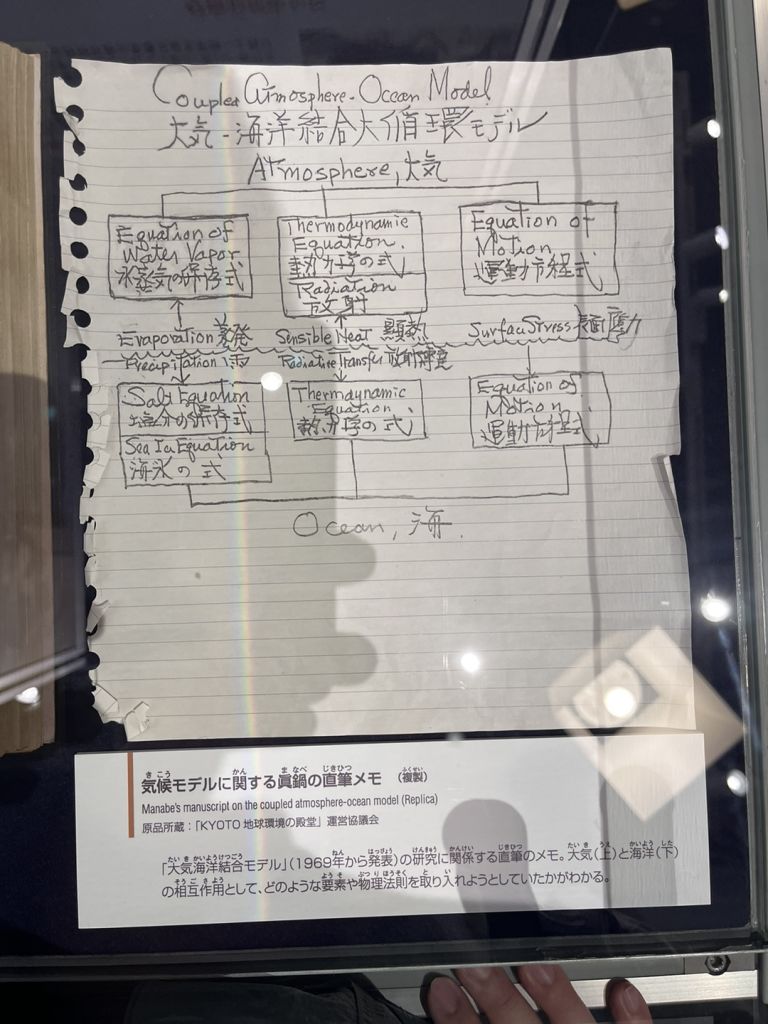 Coupled Atmosphere-Ocean Model
大気-海洋結合大循環モデル
Atmosphere, 大気
Equation of
Water Vapor
水蒸気の保存式
Thermodynamic
Equation.
熱力学の式
Radiation
放射
Equation of
Motion
運動方程式
Evaporation 蒸発
Sensible Heat 顕熱
Surface Stress 表面応力
Precipitation 雨
Radiative Transfer 放射
Salt Equation
塩分の保存式
Sea Ice Equation
海氷の式
Thermodynamic
Equation
熱力学の式
Equation of
Motion
運動方程式
Ocean, 海
気候モデルに関する眞鍋の直筆メモ (複製)
Manabe's manuscript on the coupled atmosphere-ocean model (Replica)
原品所蔵:「KYOTO 地球環境の殿堂」運営協議会
「大気海洋結合モデル」(1969年から発表)の研究に関係する直筆のメモ。大気(上)と海洋(下)
の相互作用として、どのような要素や物理法則を取り入れようとしていたかがわかる。